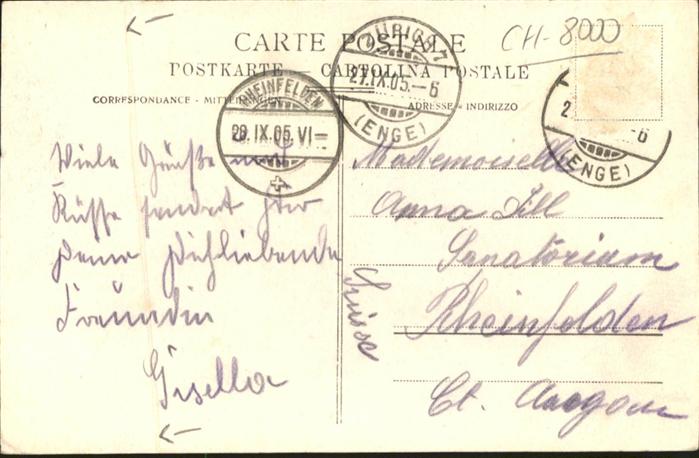 CH-8000
CARTE POSTALE
POSTKARTE — CARTOLINA POSTALE
CORRESPONDANCE - MITTEILUNGEN
ADRESSE - INDIRIZZO
ZÜRICH 1
27.IX.05.–6
(ENGE)
RHEINFELDEN
28.IX.05.VI
2
–6
(ENGE)
Viele Grüße und
Küsse sendet Ihr
Deine Dichliebende
Freundin
Gisella
Mademoiselle
Anna Ill
Sanatórium
Rheinfelden
Ct. Aargau
Suisse